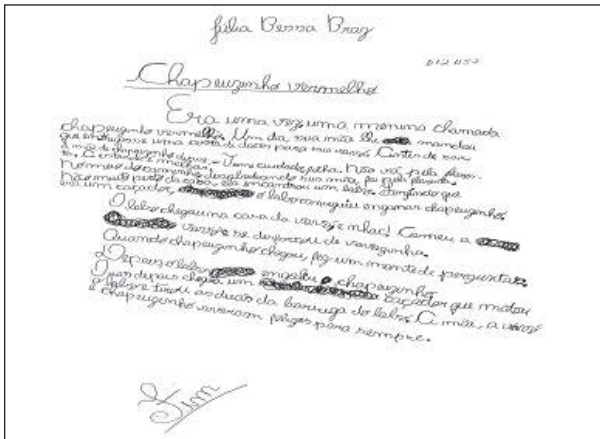 Júlia Bessa Braz
Chapeuzinho vermelho
Era uma vez uma menina chamada
chapeuzinho vermelho. Um dia, sua mãe lhe mandou
que entregasse uma cesta de doces para sua vovó. Antes de sair
a mãe de chapeuzinho disse: - Tome cuidado filha. Não vá pela
No meio do caminho desobedecendo sua mãe, foi pela floresta.
Não muito perto da casa, ela encontrou um lobo. fingindo que
era um caçador, o lobo conseguiu enganar chapeuzinho.
O lobo chegou na casa da vovó e nhac! Comeu a
vovó e se disfarçou de vovozinha.
Quando chapeuzinho chegou, fez um monte de perguntas.
Depois o lobo engoliu chapeuzinho.
depois chega um caçador que matou
o lobo e tirou as duas da barriga do lobo. A mãe, a vovó
e chapeuzinho viveram felizes para sempre.
Fim